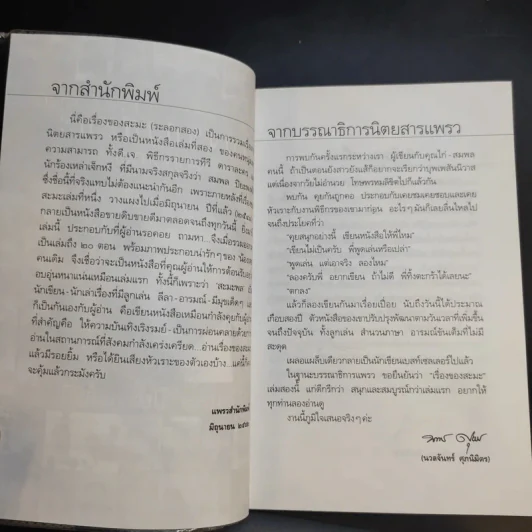 จากสำนักพิมพ์
นี่คือเรื่องของสะมะ (ระลอกสอง) เป็นการรวมเรื่อง
นิตยสารแพรว หรือเป็นหนังสือเล่มที่สอง ของคน
ความสามารถ ทั้งดี.เจ. พิธีกรรายการทีวี ดาราละคร
นักร้องเหล่าเจ็กหงี ที่มีนามจริงสกุลจริงว่า สมพล
ซึ่งชื่อนี้ที่จริงแทบไม่ต้องแนะนำกันอีก เพราะภายหลังที่
สะมะเล่มที่หนึ่ง วางแผงไปเมื่อมิถุนายน ปีที่แล้ว
กลายเป็นหนังสือขายดิบขายดีมาตลอดจนถึงทุกวันนี้
เล่มนี้ ประกอบกับที่ผู้อ่านรอคอย ถามหา...จึงเมื่อรวม
เป็นเล่มถึง ๒๐ ตอน พร้อมภาพประกอบน่ารักๆ ของ
คนเดิม จึงเชื่อว่าจะเป็นหนังสือที่คุณผู้อ่านให้การต้อนรับ
อบอุ่นหนาแน่นเหมือนเล่มแรก ทั้งนี้ก็เพราะว่า "สะมะพล
นักเขียน-นักเล่าเรื่องที่มีลูกเล่น ลีลา-อารมณ์-มีมุขเด็ดๆ
ก็เป็นกันเองกับผู้อ่าน คือเขียนหนังสือเหมือนกำลังคุยกับผู้
ที่สำคัญคือ ให้ความบันเทิงเริงรมย์-เป็นการผ่อนคลายด้วยการ
อ่านในสถานการณ์ที่สังคมกำลังเคร่งเครียด...อ่านเรื่องของสะมะ
แล้วมีรอยยิ้ม หรือได้ยินเสียงหัวเราะของตัวเองบ้าง...แค่นี้ก็
จะคุ้มแล้วกระมังครับ
แพรวสำนักพิมพ์
มิถุนายน
จากบรรณาธิการนิตยสารแพรว
การพบกันครั้งแรกระหว่างเรา -ผู้เขียนกับคุณไก่-สมพล
คนนี้ ถ้าเป็นตอนยังสาวยังแส้ก็อยากจะเรียกว่าบุพเพสันนิวาส
แต่เนื่องจากวัยไม่อำนวย โทษพรหมลิขิตไปก็แล้วกัน
พบกัน คุยกันถูกคอ ประกอบกับเคยชมเคยชอบและเคย
หัวเราะกับงานพิธีกรของเขามาก่อน อะไรๆ มันก็เลยลื่นไหลไป
จนถึงประโยคที่ว่า
"คุยสนุกอย่างนี้ เขียนหนังสือให้พี่ไหม"
"เขียนไม่เป็นครับ พี่พูดเล่นหรือเปล่า"
"พูดเล่น แต่เอาจริง ลองไหม"
"ลองครับพี่ อยากเขียน ถ้าไม่ดี พี่ทิ้งตะกร้าได้เลยนะ"
"ตกลง"
แล้วก็ลองเขียนกันมาเรื่อยเปื่อย นับถึงวันนี้ได้ประมาณ
เกือบสองปี ตัวหนังสือของเขาปรับปรุงพัฒนาตามวันเวลาที่เพิ่มขึ้น
จนถึงปัจจุบัน ทั้งลูกเล่น สำนวนภาษา อารมณ์ขันเต็มที่ไม่มี
สะดุด
เผลอแผล็บเดียวกลายเป็นนักเขียนเบสท์เซลเลอร์ไปแล้ว
ในฐานะบรรณาธิการแพรว ขอยืนยันว่า "เรื่องของสะมะ"
เล่มสองนี้ แก่ดีกรีกว่า สนุกและสมบูรณ์กว่าเล่มแรก อยากให้
ทุกท่านลองอ่านดู
งานนี้ภูมิใจเสนอจริงๆ ค่ะ
(นวลจันทร์ ศุภนิมิตร)